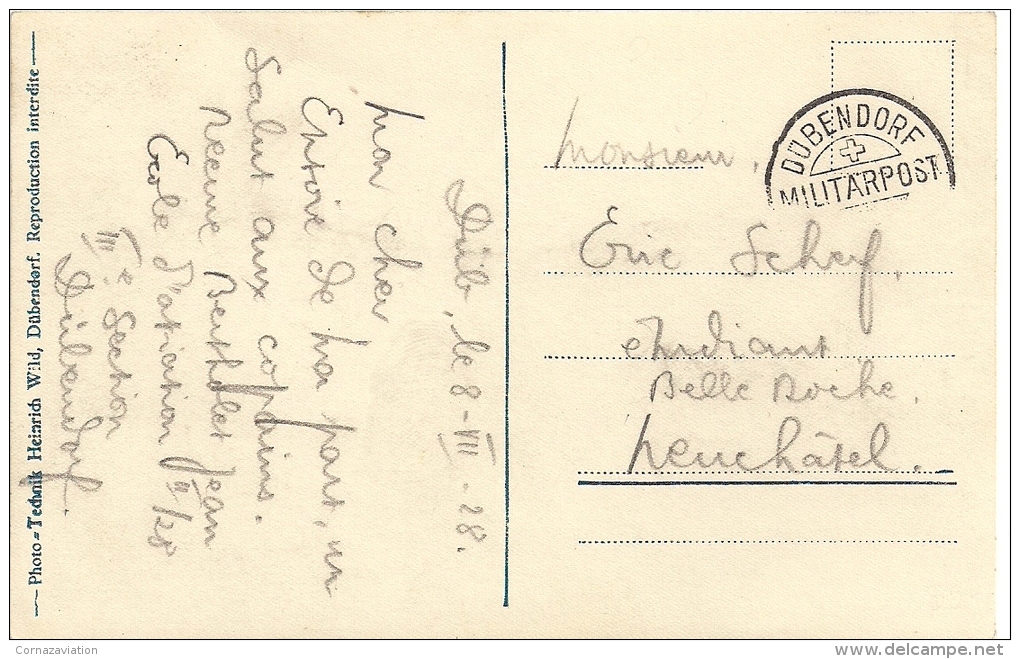 Düb, le 8-VII-28.
Mon cher
Envoie de ma part, un
Salut aux copains.
Recrue Berthdlet Jean
Ecole d'aviation II/28
IIIe Section
Dübendorf.
Photo-Technik Heinrich Wild, Dübendorf. Reproduction interdite
DÜBENDORF
MILITÄRPOST
Monsieur,
Eric Scherf,
etudiant
Belle Roche.
Neuchâtel.
Cornazaviation
www.delcampe.net